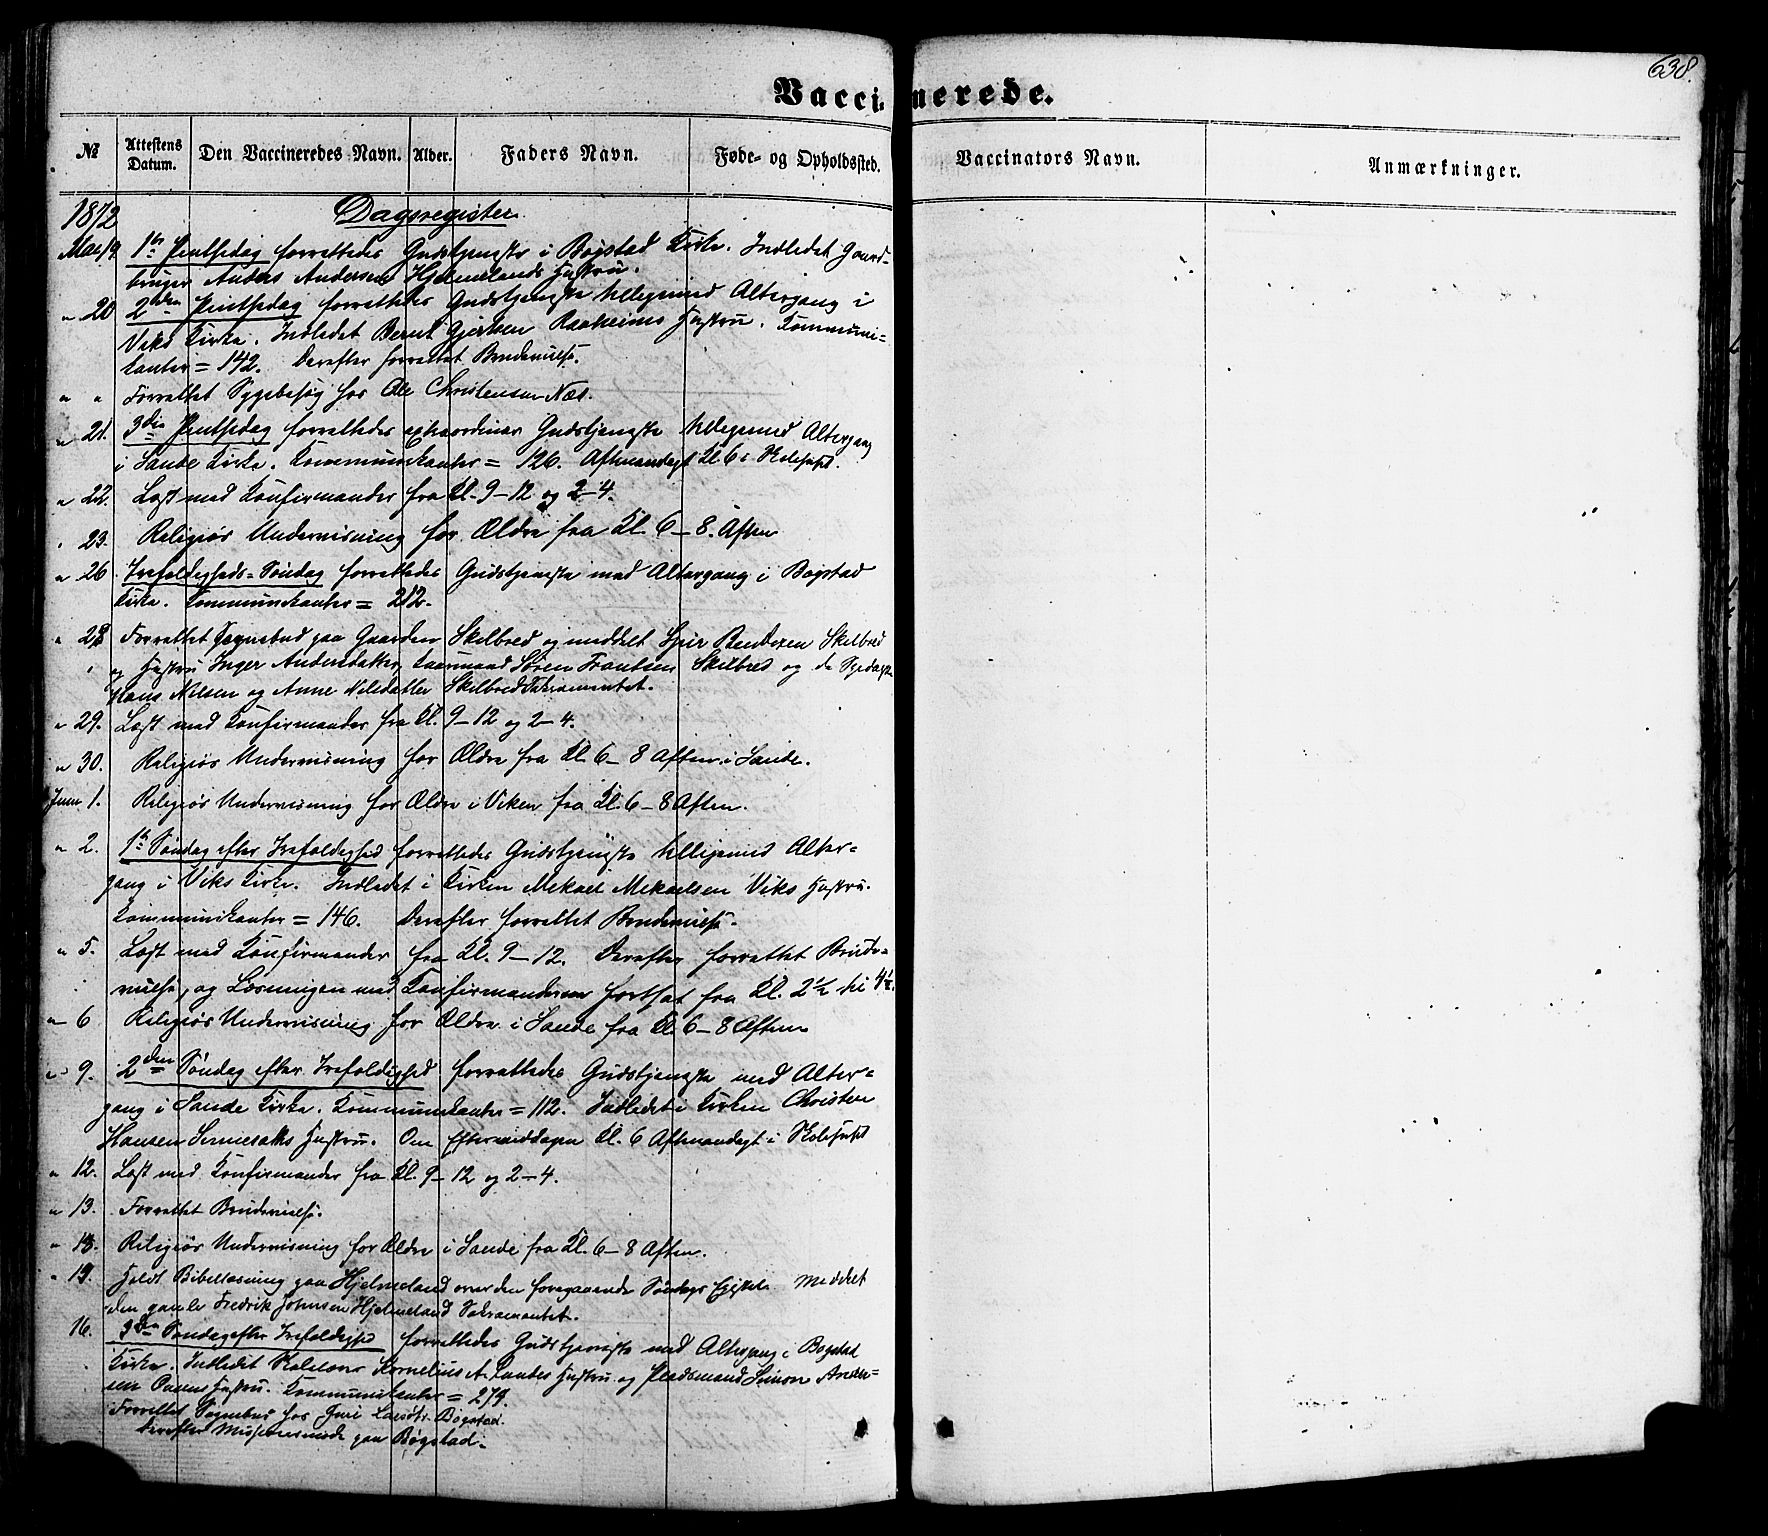 638.
Vaccinerede.
№ Attestens Datum. Den Vaccineredes Navn. Alder. Faders Navn. Føde- og Opholdssted. Vaccinators Navn. Anmærkninger.
1872 Dagsregister.
Mai 19 1ste Pintsedag forrettedes Gudstjeneste i Bøgstad Kirke. Indledet Gaard-
bruger Anders Andersen Hjelmelands Hustru.
" 20 2den Pintsedag forrettedes Gudstjeneste tilligemed Altergang i
Viks Kirke. Indledet Bernt Gjertsen Raaheims Hustru. Kommuni-
kanter = 142. Derefter forrettet Brudevielse.
" " Forrettet Sygebesøg hos Ole Christensen Næs.
" 21. 3die Pintsedag forrettedes extraordinær Gudstjeneste tilligemed Altergang
i Sande Kirke. Kommunikanter = 126. Aftenandagt Kl. 6 i Skolehuset.
" 22. Læst med Konfirmander fra Kl. 9-12 og 2-4.
" 23. Religiøs Undervisning for Ældre fra Kl. 6-8 Aften
" 26 Trefoldigheds-Søndag forrettedes Gudstjeneste med Altergang i Bøgstad
Kirke. Kommunikanter = 212.
" 28 Forrettet Sognebud paa Gaarden Skilbred og meddelt Bendixen Skilbred
og Hustru Inger Andersdatter, Kaarmand Søren Frantsen Skilbred og de
Hans Nilsen og Anne Nilsdatter Skilbred Sakramentet.
" 29. Læst med Konfirmander fra Kl. 9-12 og 2-4.
" 30. Religiøs Undervisning for Ældre fra Kl. 6-8 Aften i Sande.
Juni 1. Religiøs Undervisning for Ældre i Viken fra Kl. 6-8 Aften.
" 2. 1ste Søndag efter Trefoldighed forrettedes Gudstjeneste tilligemed Alter-
gang i Viks Kirke. Indledet i Kirken Mekael Mekaelsen Viks Hustru.
Kommunikanter = 146. Derefter forrettet Brudevielse.
" 5. Læst med Konfirmander fra Kl. 9-12. Derefter forrettet Brude-
vielse, og Læsningen med Konfirmanderne fortsat fra Kl. 2½ til 4½.
" 6 Religiøs Undervisning for Ældre i Sande fra Kl 6-8 Aften
" 9. 2den Søndag efter Trefoldighed forrettedes Gudstjeneste med Alter-
gang i Sande Kirke. Kommunikanter = 112. Indledet i Kirken Christen
Hansen Hustru. Om Eftermiddagen Kl. 6 Aftenandagt i Skolehuset
" 12. Læst med Konfirmander fra Kl. 9-12 og 2-4.
" 13. Forrettet Brudevielse.
" 13. Religiøs Undervisning for Ældre i Sande fra Kl. 6-8 Aften.
" Holdt Bibellæsning paa Hjelmeland over den foregaaende Søndags Epistel. Meddelt
den gamle Fredrik Johnsen Hjelmeland Sakramentet.
16. 3die Søndag efter Trefoldighed forrettedes Gudstjeneste med Altergang i Bøgstad
Kirke. Indledet Kornelius A. Landes Hustru og Pladsmand Simon Ander-
sen Hustru. Kommunikanter = 279.
Forrettet Sognebud hos Bøgstad.
Derefter Missionsmøde paa Bøgstad.